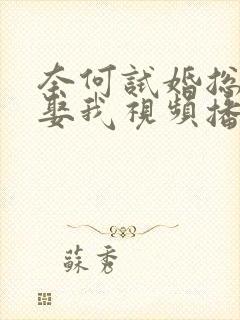 奈何試婚總
娶我視頻播
蘇秀